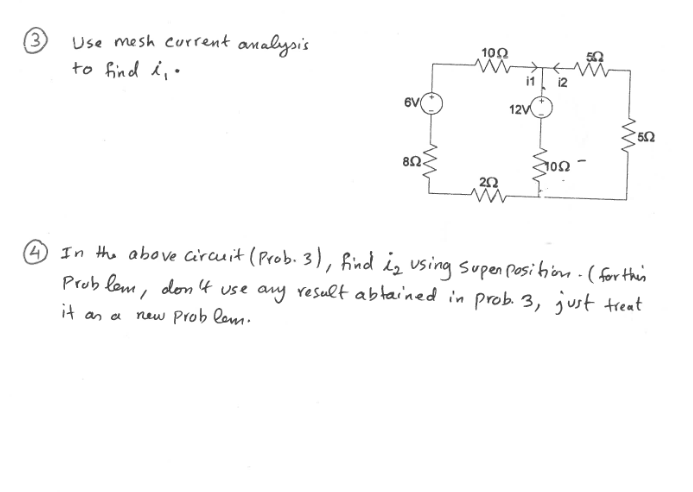 3 Use mesh current analysis
to find i₁.
10Ω
5Ω
i1 i2
6V
12V
5Ω
8Ω
10Ω
2Ω
4 In the above circuit (Prob. 3), find i₂ using Superposition. (for this
Problem, don't use any result abtained in prob. 3, just treat
it as a new Problem.